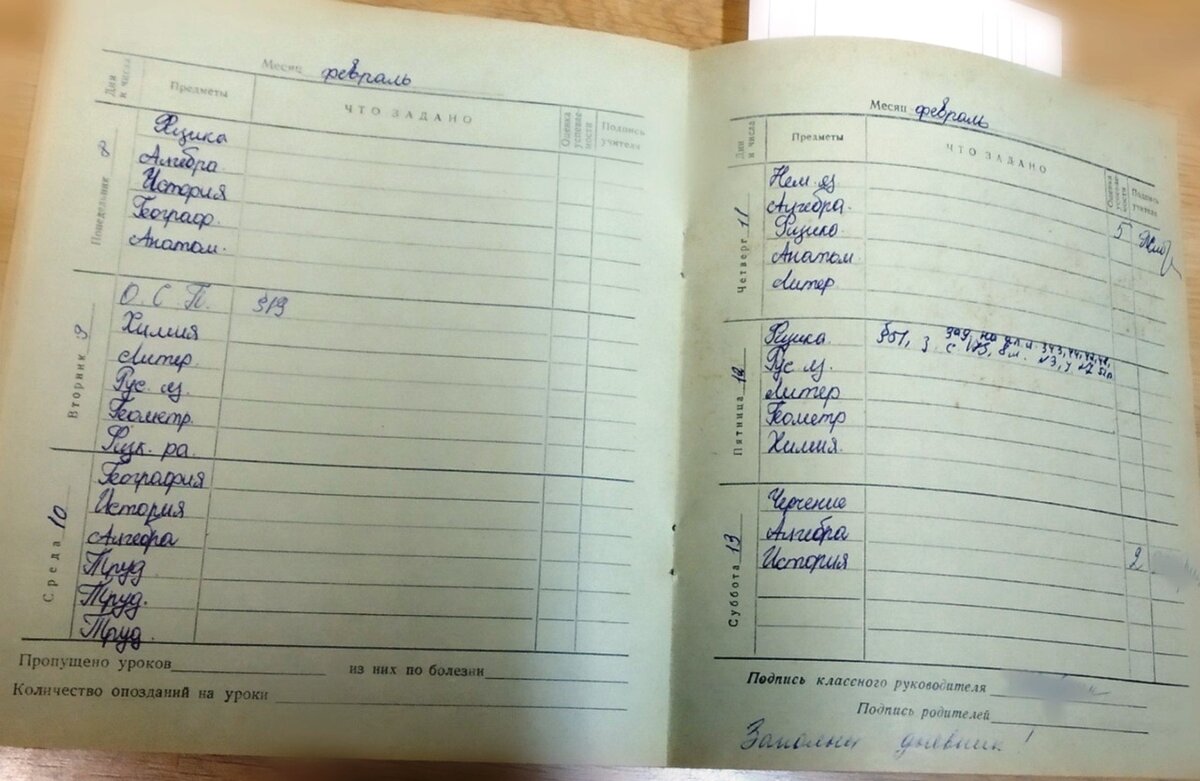 Месяц февраль
Дни и числа Предметы ЧТО ЗАДАНО Оценка успеваемости Подпись учителя
Понедельник 8
Физика
Алгебра
История
Географ.
Анатом.
Вторник 9
О. С. П. §19
Химия
Литер.
Рус. яз.
Геометр.
Физк-ра.
Среда 10
География
История
Алгебра
Труд
Труд.
Труд.
Пропущено уроков из них по болезни
Количество опозданий на уроки
Месяц февраль
Дни и числа Предметы ЧТО ЗАДАНО Оценка успеваемости Подпись учителя
Четверг 11
Нем. яз
Алгебра. 5
Физика.
Анатом.
Литер.
Пятница 12
Физика §51, з.
Рус. яз.
Литер
Геометр
Химия.
Суббота 13
Черчение
Алгебра
История 2
Подпись классного руководителя
Подпись родителей
Заполни дневник!